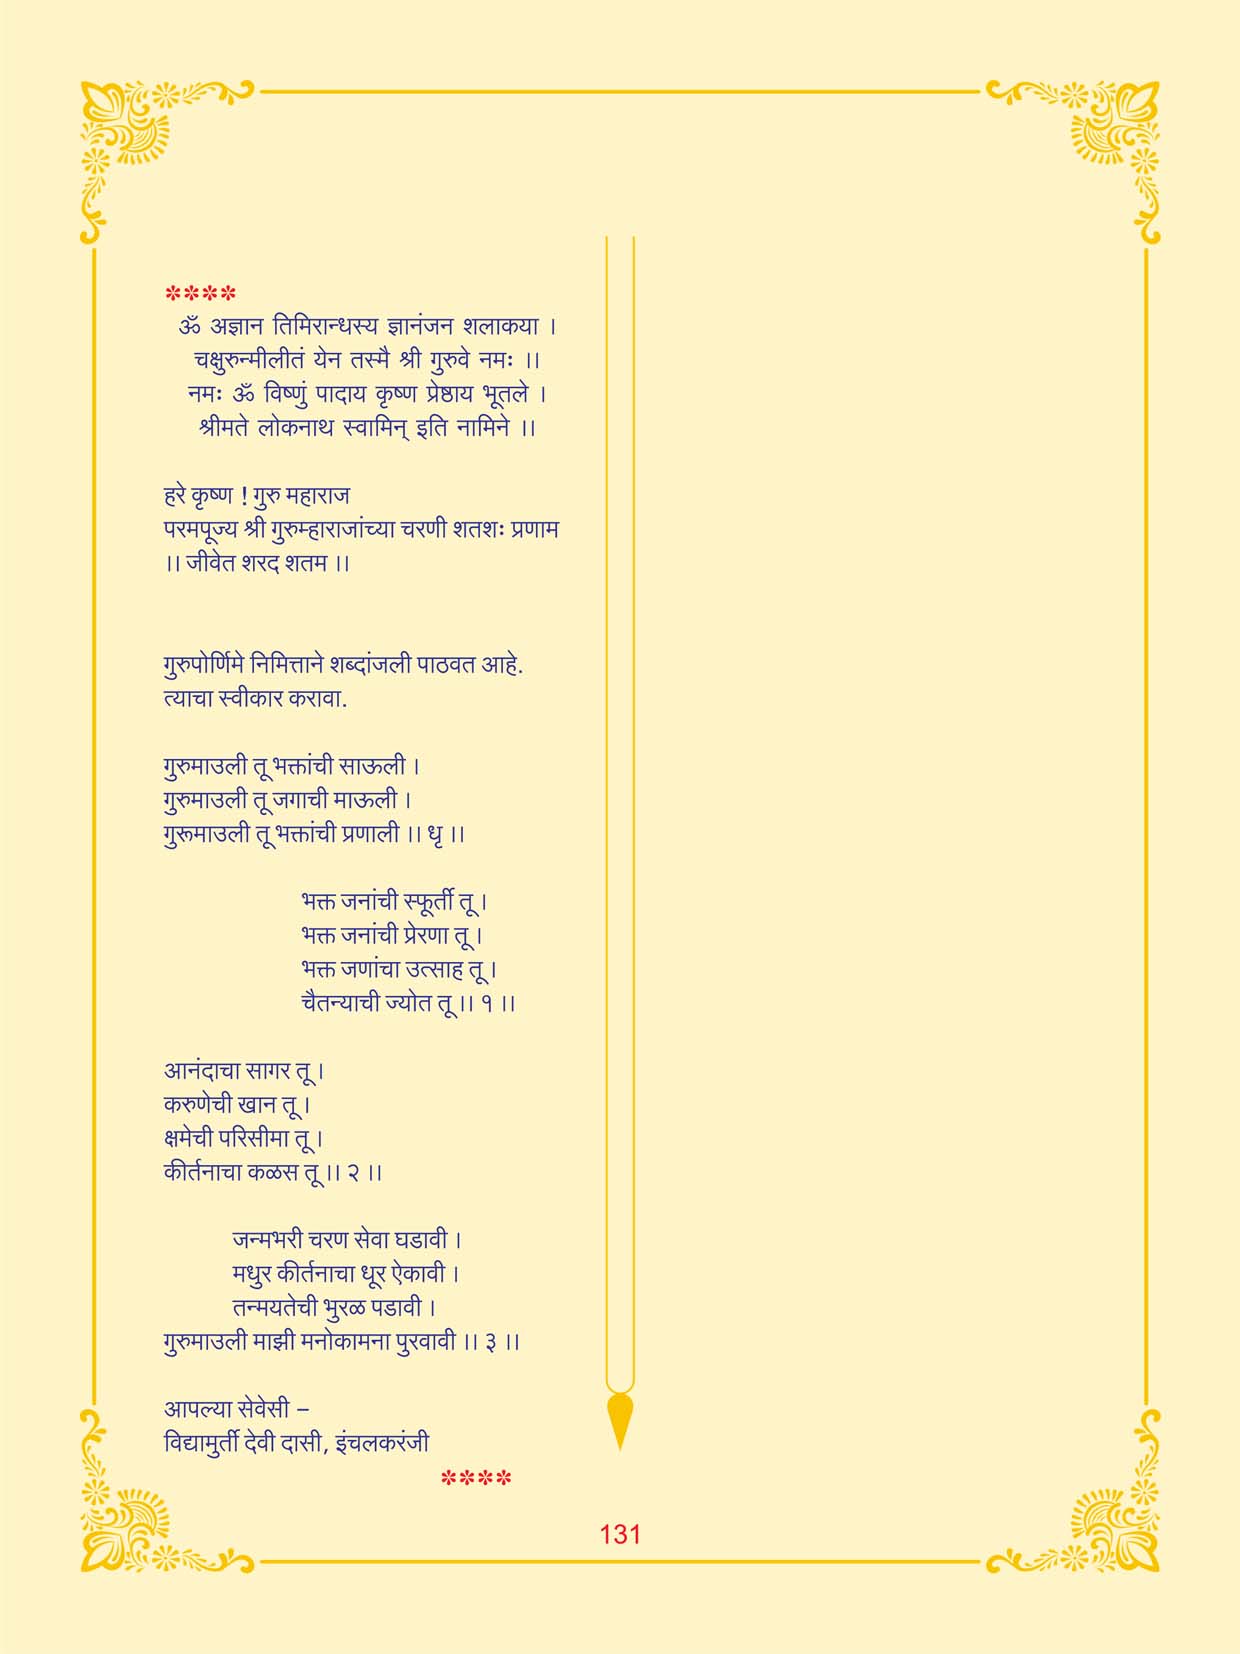 ****
ॐ अज्ञान तिमिरान्धस्य ज्ञानंजन शलाकया ।
चक्षुरुन्मीलीतं येन तस्मै श्री गुरुवे नमः ।।
नमः ॐ विष्णुं पादाय कृष्ण प्रेष्ठाय भूतले ।
श्रीमते लोकनाथ स्वामिन् इति नामिने ।।
हरे कृष्ण ! गुरु महाराज
परमपूज्य श्री गुरुम्हाराजांच्या चरणी शतशः प्रणाम
।। जीवेत शरद शतम ।।
गुरुपोर्णिमे निमित्ताने शब्दांजली पाठवत आहे.
त्याचा स्वीकार करावा.
गुरुमाउली तू भक्तांची साऊली ।
गुरुमाउली तू जगाची माऊली ।
गुरूमाउली तू भक्तांची प्रणाली ।। धृ ।।
भक्त जनांची स्फूर्ती तू ।
भक्त जनांची प्रेरणा तू ।
भक्त जणांचा उत्साह तू ।
चैतन्याची ज्योत तू ।। १ ।।
आनंदाचा सागर तू ।
करुणेची खान तू ।
क्षमेची परिसीमा तू ।
कीर्तनाचा कळस तू ।। २ ।।
जन्मभरी चरण सेवा घडावी ।
मधुर कीर्तनाचा धूर ऐकावी ।
तन्मयतेची भुरळ पडावी ।
गुरुमाउली माझी मनोकामना पुरवावी ।। ३ ।।
आपल्या सेवेसी –
विद्यामुर्ती देवी दासी, इंचलकरंजी
****
131